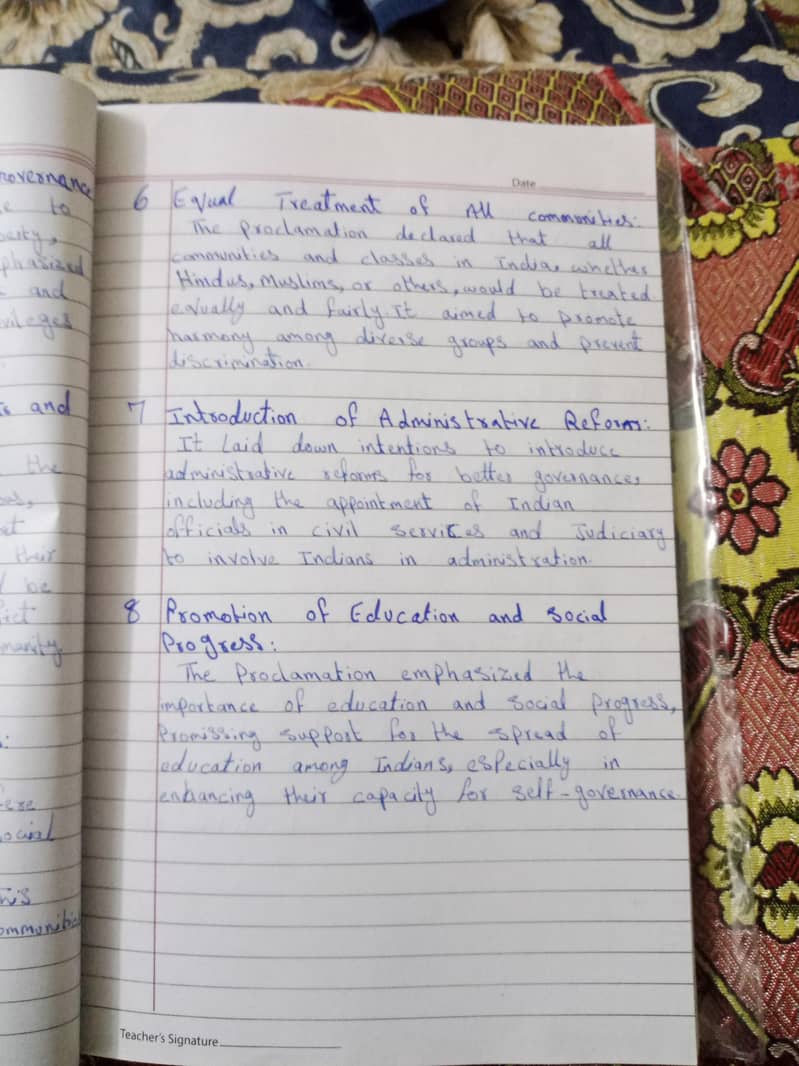 overnance
to
phasized
and
vileges
and
the
their
be
ocial
Date
6 Equal Treatment of All communities:
The Proclamation declared that all
communities and classes in India, whether
Hindus, Muslims, or others, would be treated
equally and fairly. It aimed to promote
harmony among diverse groups and prevent
discrimination.
7 Introduction of Administrative Reform:
It laid down intentions to introduce
administrative reforms for better governance,
including the appointment of Indian
officials in civil services and Judiciary
to involve Indians in administration.
8 Promotion of Education and Social
Progress:
The Proclamation emphasized the
importance of education and social progress,
Promissing support for the spread of
education among Indians, especially in
enhancing their capacity for self-governance.
Teacher's Signature